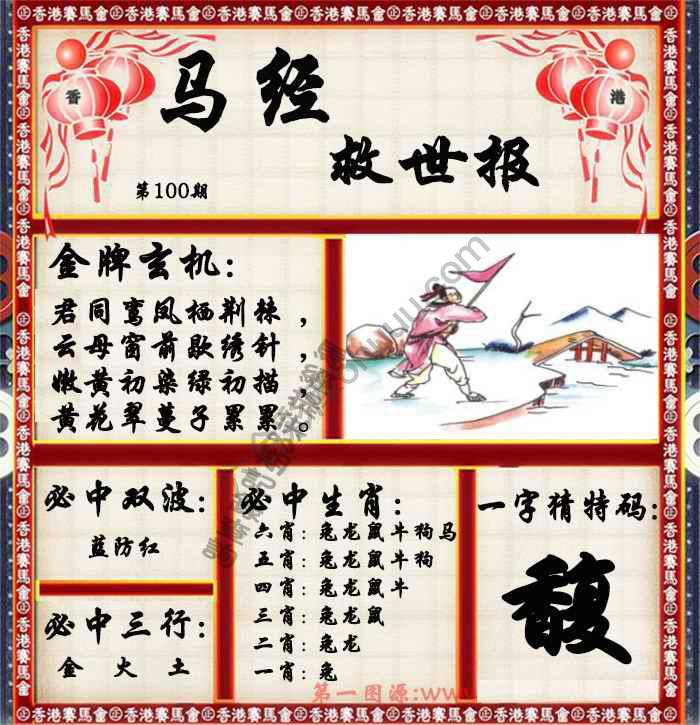 香港賽馬會
香 港
马经
救世报
第100期
金牌玄机:
君同鸾凤栖荆棘，
云母窗前歇绣针，
嫩黄初染绿初描，
黄花翠蔓子累累。
必中双波:
蓝防红
必中三行:
金 火 土
必中生肖:
六肖: 兔龙鼠牛狗马
五肖: 兔龙鼠牛狗
四肖: 兔龙鼠牛
三肖: 兔龙鼠
二肖: 兔龙
一肖: 兔
一字猜特码:
馥
第一图源:www